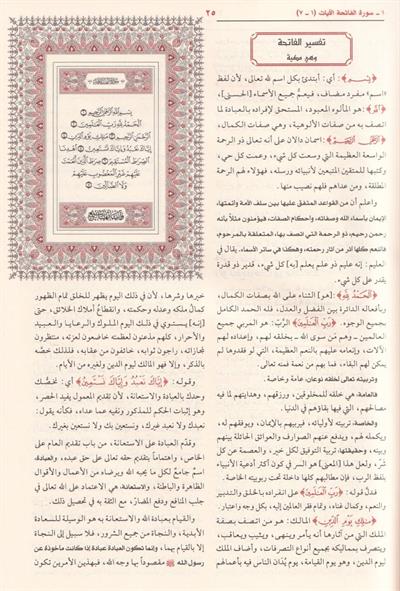 ١ - سورة الفاتحة الآيات (١ - ٧)
٢٥
تفسير الفاتحة
وهي مكية
﴿بِسْمِ﴾: أي: أبتدئ بكل اسم لله تعالى، لأن لفظ
«اسم» مفرد مضاف، فيعمُّ جميع الأسماء [الحسنى].
﴿اللَّهِ﴾: هو المألوه المعبود، المستحق لإفراده بالعبادة لما
اتصف به من صفات الألوهية، وهي صفات الكمال.
﴿الرَّحْمَٰنِ الرَّحِيمِ﴾: اسمان دالان على أنه تعالى ذو الرحمة
الواسعة العظيمة التي وسعت كل شيء، وعمت كل حي،
وكتبها للمتقين المتبعين لأنبيائه ورسله، فهؤلاء لهم الرحمة
المطلقة، ومن عداهم فلهم نصيب منها.
واعلم أن من القواعد المتفق عليها بين سلف الأمة وأئمتها،
الإيمان بأسماء الله وصفاته، وأحكام الصفات، فيؤمنون مثلاً بأنه
رحمن رحيم، ذو الرحمة التي اتصف بها، المتعلقة بالمرحوم.
فالنعم كلها أثر من آثار رحمته، وهكذا في سائر الأسماء. يقال في
العليم: إنه عليم ذو علم يعلم [به] كل شيء، قدير ذو قدرة
يقدر على كل شيء.
﴿الْحَمْدُ لِلَّهِ﴾: [هو] الثناء على الله بصفات الكمال،
وبأفعاله الدائرة بين الفضل والعدل، فله الحمد الكامل
بجميع الوجوه. ﴿رَبِّ الْعَالَمِينَ﴾ الرَّبُّ: هو المربي جميع
العالمين - وهم من سوى الله - بخلقه لهم، وإعداده لهم
الآلات، وإنعامه عليهم بالنعم العظيمة، التي لو فقدوها لم
يكن لهم البقاء، فما بهم من نعمة فمنه تعالى.
وتربيته تعالى لخلقه نوعان: عامة وخاصة.
فالعامة: هي خلقه للمخلوقين، ورزقهم، وهدايتهم لما فيه
مصالحهم، التي فيها بقاؤهم في الدنيا.
والخاصة: تربيته لأوليائه، فيربيهم بالإيمان، ويوفقهم له،
ويكمله لهم، ويدفع عنهم الصوارف والعوائق الحائلة بينهم
وبينه، وحقيقتها: تربية التوفيق لكل خير، والعصمة عن كل
شر، ولعل هذا [المعنى] هو السر في كون أكثر أدعية الأنبياء
بلفظ الرب، فإن مطالبهم كلها داخلة تحت ربوبيته الخاصة.
فدل قوله: ﴿رَبِّ الْعَالَمِينَ﴾ على انفراده بالخلق والتدبير
والنعم، وكمال غناه، وتمام فقر العالمين إليه، بكل وجه واعتبار.
﴿مَالِكِ يَوْمِ الدِّينِ﴾ المالك: هو من اتصف بصفة
الملك التي من آثارها أنه يأمر وينهى، ويثيب ويعاقب،
ويتصرف بمماليكه بجميع أنواع التصرفات، وأضاف الملك
ليوم الدين، وهو يوم القيامة، يوم يُدان الناس فيه بأعمالهم
بِسْمِ اللَّهِ الرَّحْمَٰنِ الرَّحِيمِ
الْحَمْدُ لِلَّهِ رَبِّ الْعَالَمِينَ
الرَّحْمَٰنِ الرَّحِيمِ مَالِكِ يَوْمِ الدِّينِ
إِيَّاكَ نَعْبُدُ وَإِيَّاكَ نَسْتَعِينُ اهْدِنَا
الصِّرَاطَ الْمُسْتَقِيمَ صِرَاطَ الَّذِينَ أَنْعَمْتَ
عَلَيْهِمْ غَيْرِ الْمَغْضُوبِ عَلَيْهِمْ
وَلَا الضَّالِّينَ
خيرها وشرها، لأن في ذلك اليوم يظهر للخلق تمام الظهور
كمالُ ملكه وعدله وحكمته، وانقطاعُ أملاك الخلائق، حتى
[إنه] يستوي في ذلك اليوم الملوك والرعايا والعبيد
والأحرار، كلهم مذعنون لعظمته خاضعون لعزته، منتظرون
لمجازاته، راجون ثوابه، خائفون من عقابه، فلذلك خصَّه
بالذكر، وإلا فهو مالك ليوم الدين ولغيره من الأيام.
وقوله: ﴿إِيَّاكَ نَعْبُدُ وَإِيَّاكَ نَسْتَعِينُ﴾ أي: نخصُّك
وحدك بالعبادة والاستعانة، لأن تقديم المعمول يفيد الحصر،
وهو إثبات الحكم للمذكور ونفيه عما عداه، فكأنه يقول:
نعبدك ولا نعبد غيرك، ونستعين بك ولا نستعين بغيرك.
وقدَّم العبادة على الاستعانة، من باب تقديم العام على
الخاص، واهتماماً بتقديم حقه تعالى على حق عبده، والعبادة:
اسمٌ جامعٌ لكل ما يحبه الله ويرضاه من الأعمال والأقوال
الظاهرة والباطنة، والاستعانة: هي الاعتماد على الله تعالى في
جلب المنافع ودفع المضارّ، مع الثقة به في تحصيل ذلك.
والقيام بعبادة الله والاستعانة به هو الوسيلة للسعادة
الأبدية، والنجاة من جميع الشرور، فلا سبيل إلى النجاة
إلا بالقيام بهما، وإنما تكون العبادة عبادة إذا كانت مأخوذة عن
رسول الله ﷺ مقصوداً بها وجه الله، فبهذين الأمرين تكون